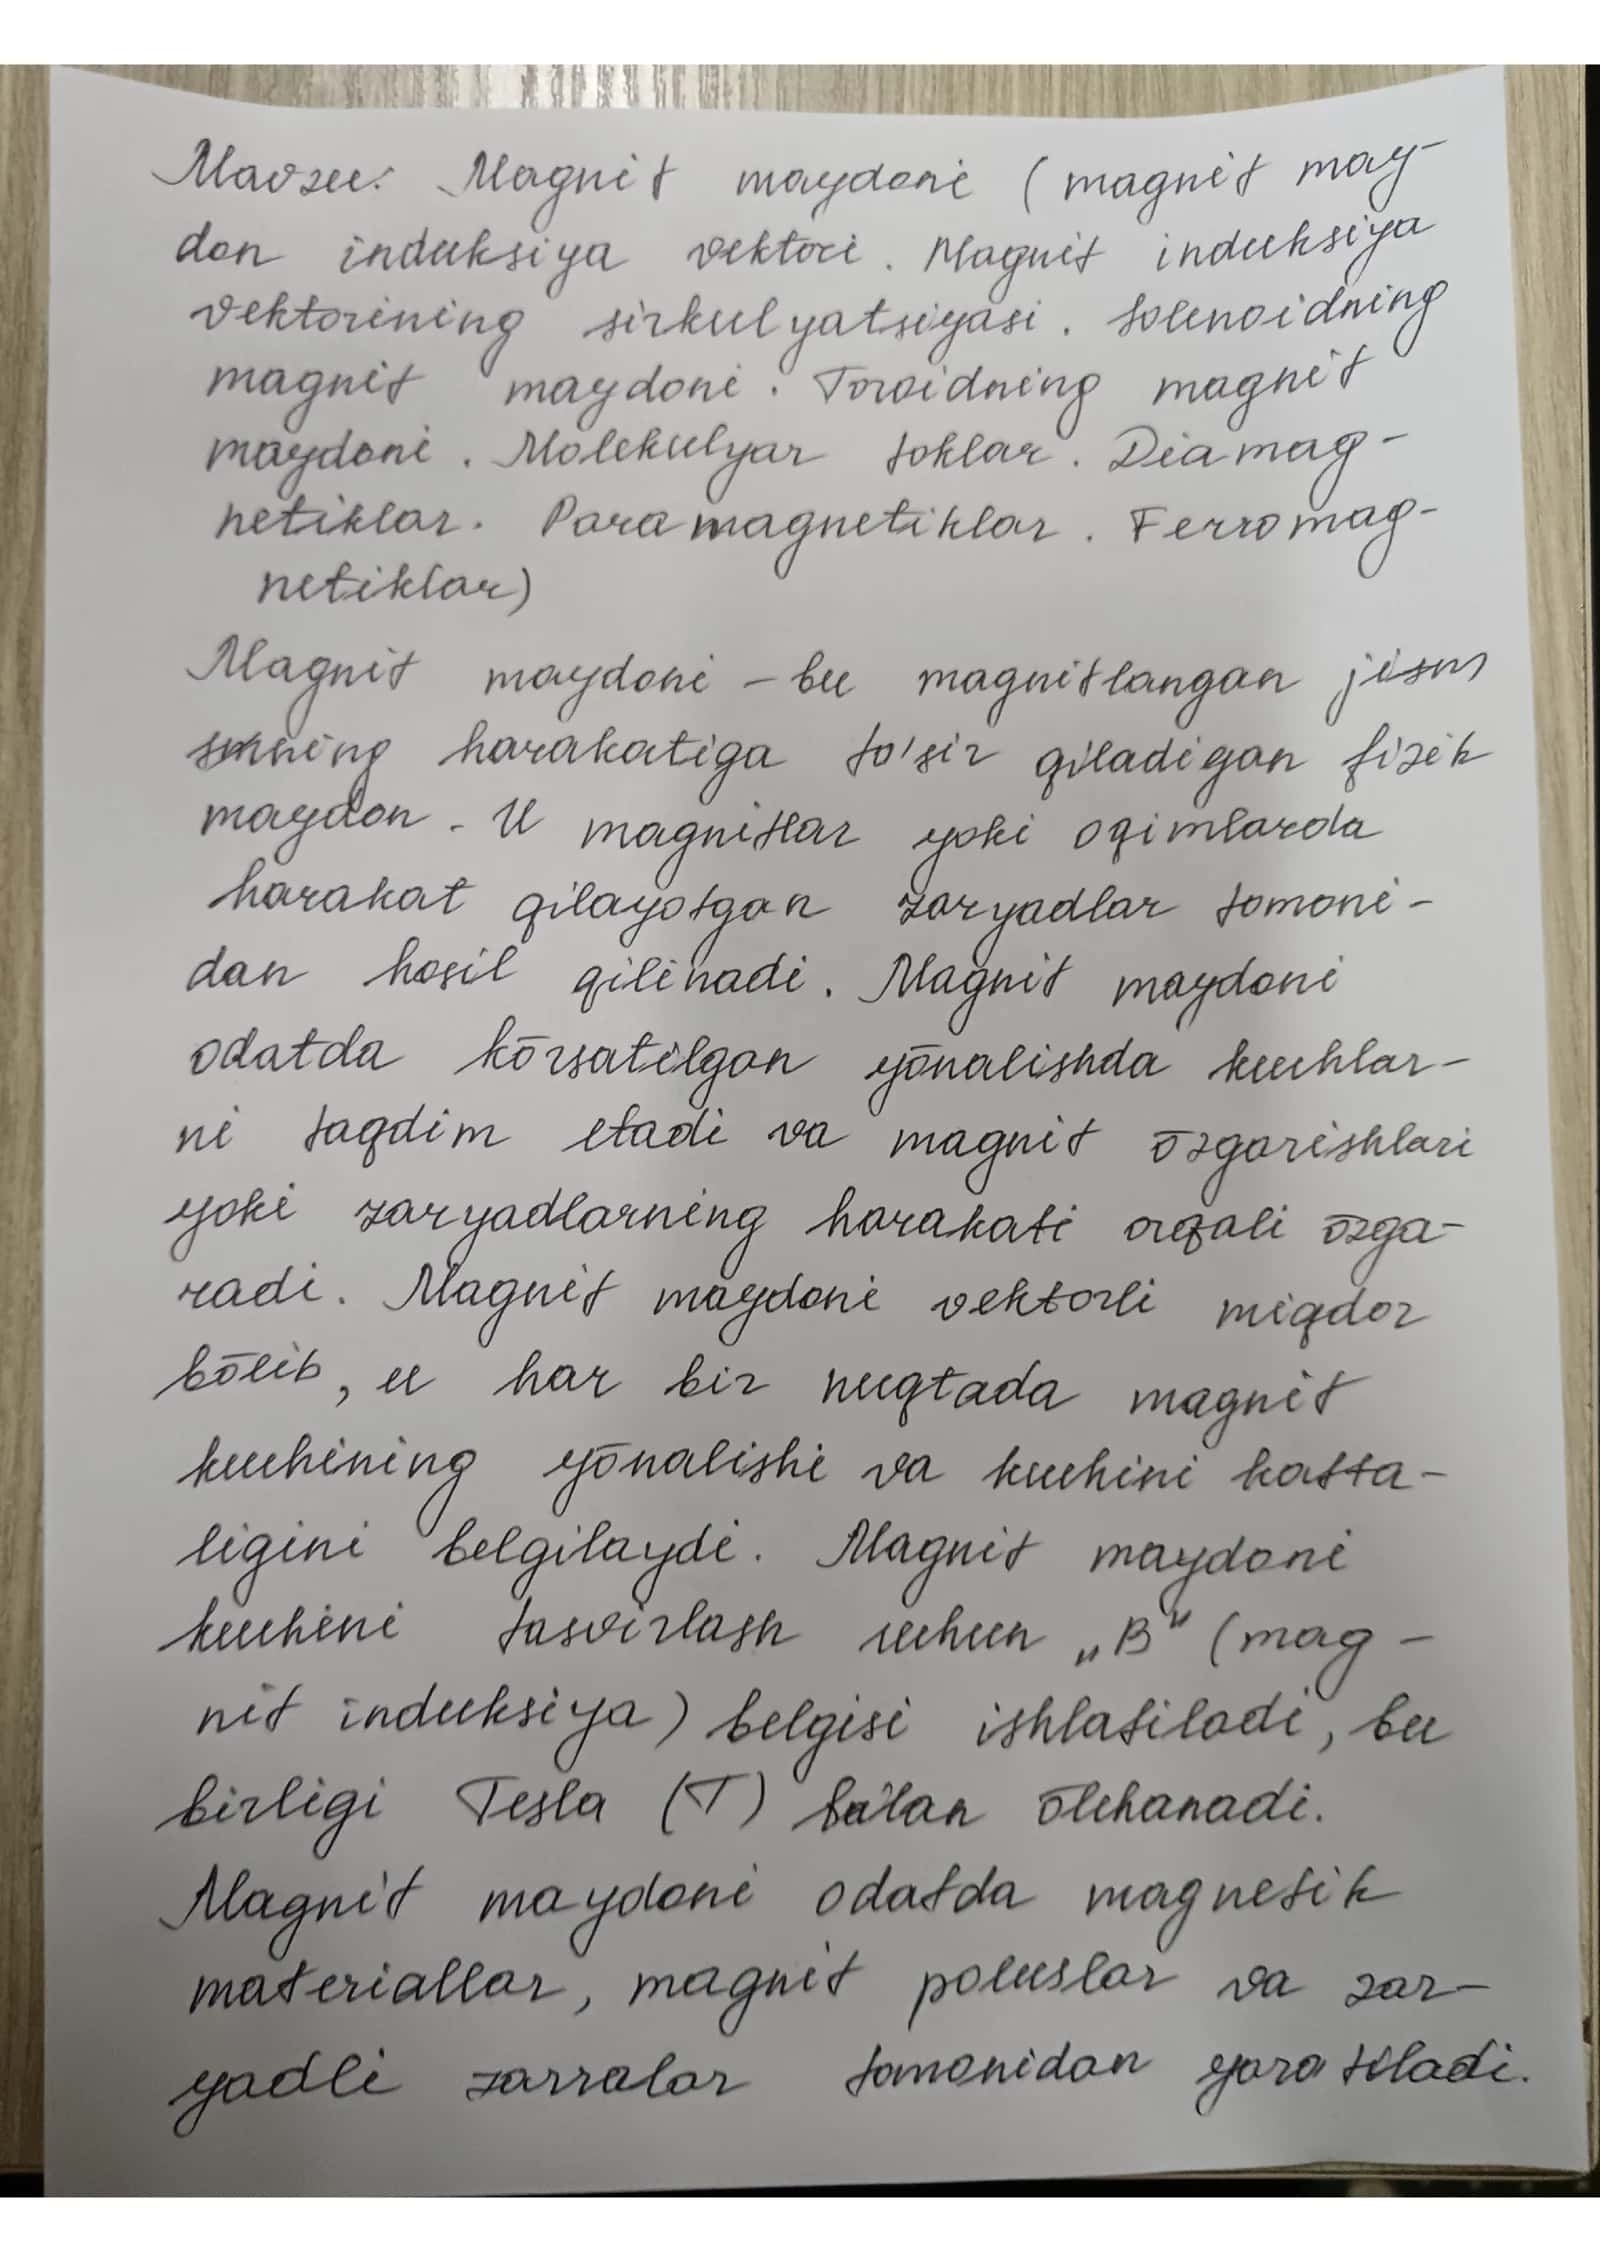 Mavzu: Magnit maydoni (magnit may-
don induksiya vektori. Magnit induksiya
vektorining sirkulyatsiyasi. Solenoidning
magnit maydoni. Toroidning magnit
maydoni. Molekulyar toklar. Diamag-
netiklar. Paramagnetiklar. Ferromag-
netiklar)
Magnit maydoni – bu magnitlangan jism
ning harakatiga ta'sir qiladigan fizik
maydon. U magnitlar yoki oqimlarda
harakat qilayotgan zaryadlar tomoni-
dan hosil qilinadi. Magnit maydoni
odatda kōrsatilgan yōnalishda kuchlar-
ni taqdim etadi va magnit ōzgarishlari
yoki zaryadlarning harakati orqali ōzga-
radi. Magnit maydoni vektorli miqdor
bōlib, u har bir nuqtada magnit
kuchining yōnalishi va kuchini katta-
ligini belgilaydi. Magnit maydoni
kuchini tasvirlash uchun „B" (mag-
nit induksiya) belgisi ishlatiladi, bu
birligi Tesla (T) bilan ōlchanadi.
Magnit maydoni odatda magnetik
materiallar, magnit poluslar va zar-
yadli zarralar tomonidan yaratiladi.